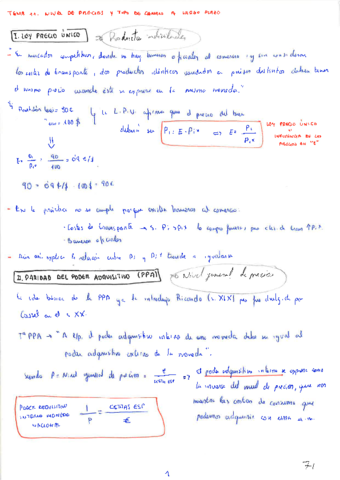 TEMA 11. NIVEL DE PRECIOS Y TIPO DE CAMBIO A LARGO PLAZO
1. LEY PRECIO ÚNICO => Productos individuales
- "En mercados competitivos, donde no hay barreras oficiales al comercio y sin considerar
los costes de transporte, dos productos idénticos vendidos en países distintos deben tener
el mismo precio cuando éste se expresa en la misma moneda."
= 90€
= 100$
L.P.U. afirma que el precio del bien
debería ser Pi = E · Pi* => E = Pi / Pi*
LEY PRECIO ÚNICO
E = Pi / Pi* = 90 / 100 = 0,9 €/$
90 = 0,9 €/$ · 100$ = 90€
- En la práctica no se cumple porque existen barreras al comercio.
- Costes de transporte
- Barreras oficiales
- explica la relación entre Pi y Pi*
2. PARIDAD DEL PODER ADQUISITIVO (PPA) => Nivel general de precios
La idea básica de la PPA ya la introdujo Ricardo (s. XIX) pero fue divulgada por
Cassel en el s. XX.
Tª PPA → "El poder adquisitivo interno de una moneda debe ser igual al
poder adquisitivo externo de la moneda".
Siendo P = Nivel general de precios = € / CESTAS ESP => El poder adquisitivo interno se expresa como
la inversa del nivel de precios, pues nos
muestra las cestas de consumo que
podemos adquirir con esta u.m.
PODER ADQUISITIVO
INTERNO MONEDA
NACIONAL
1 / P = CESTAS ESP / €
1
71